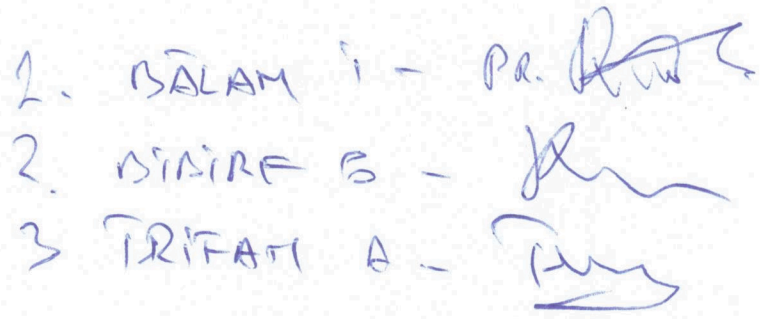 1. BĂLAN I - PR.
2. BIBIRE E -
3 TRIFAN A -